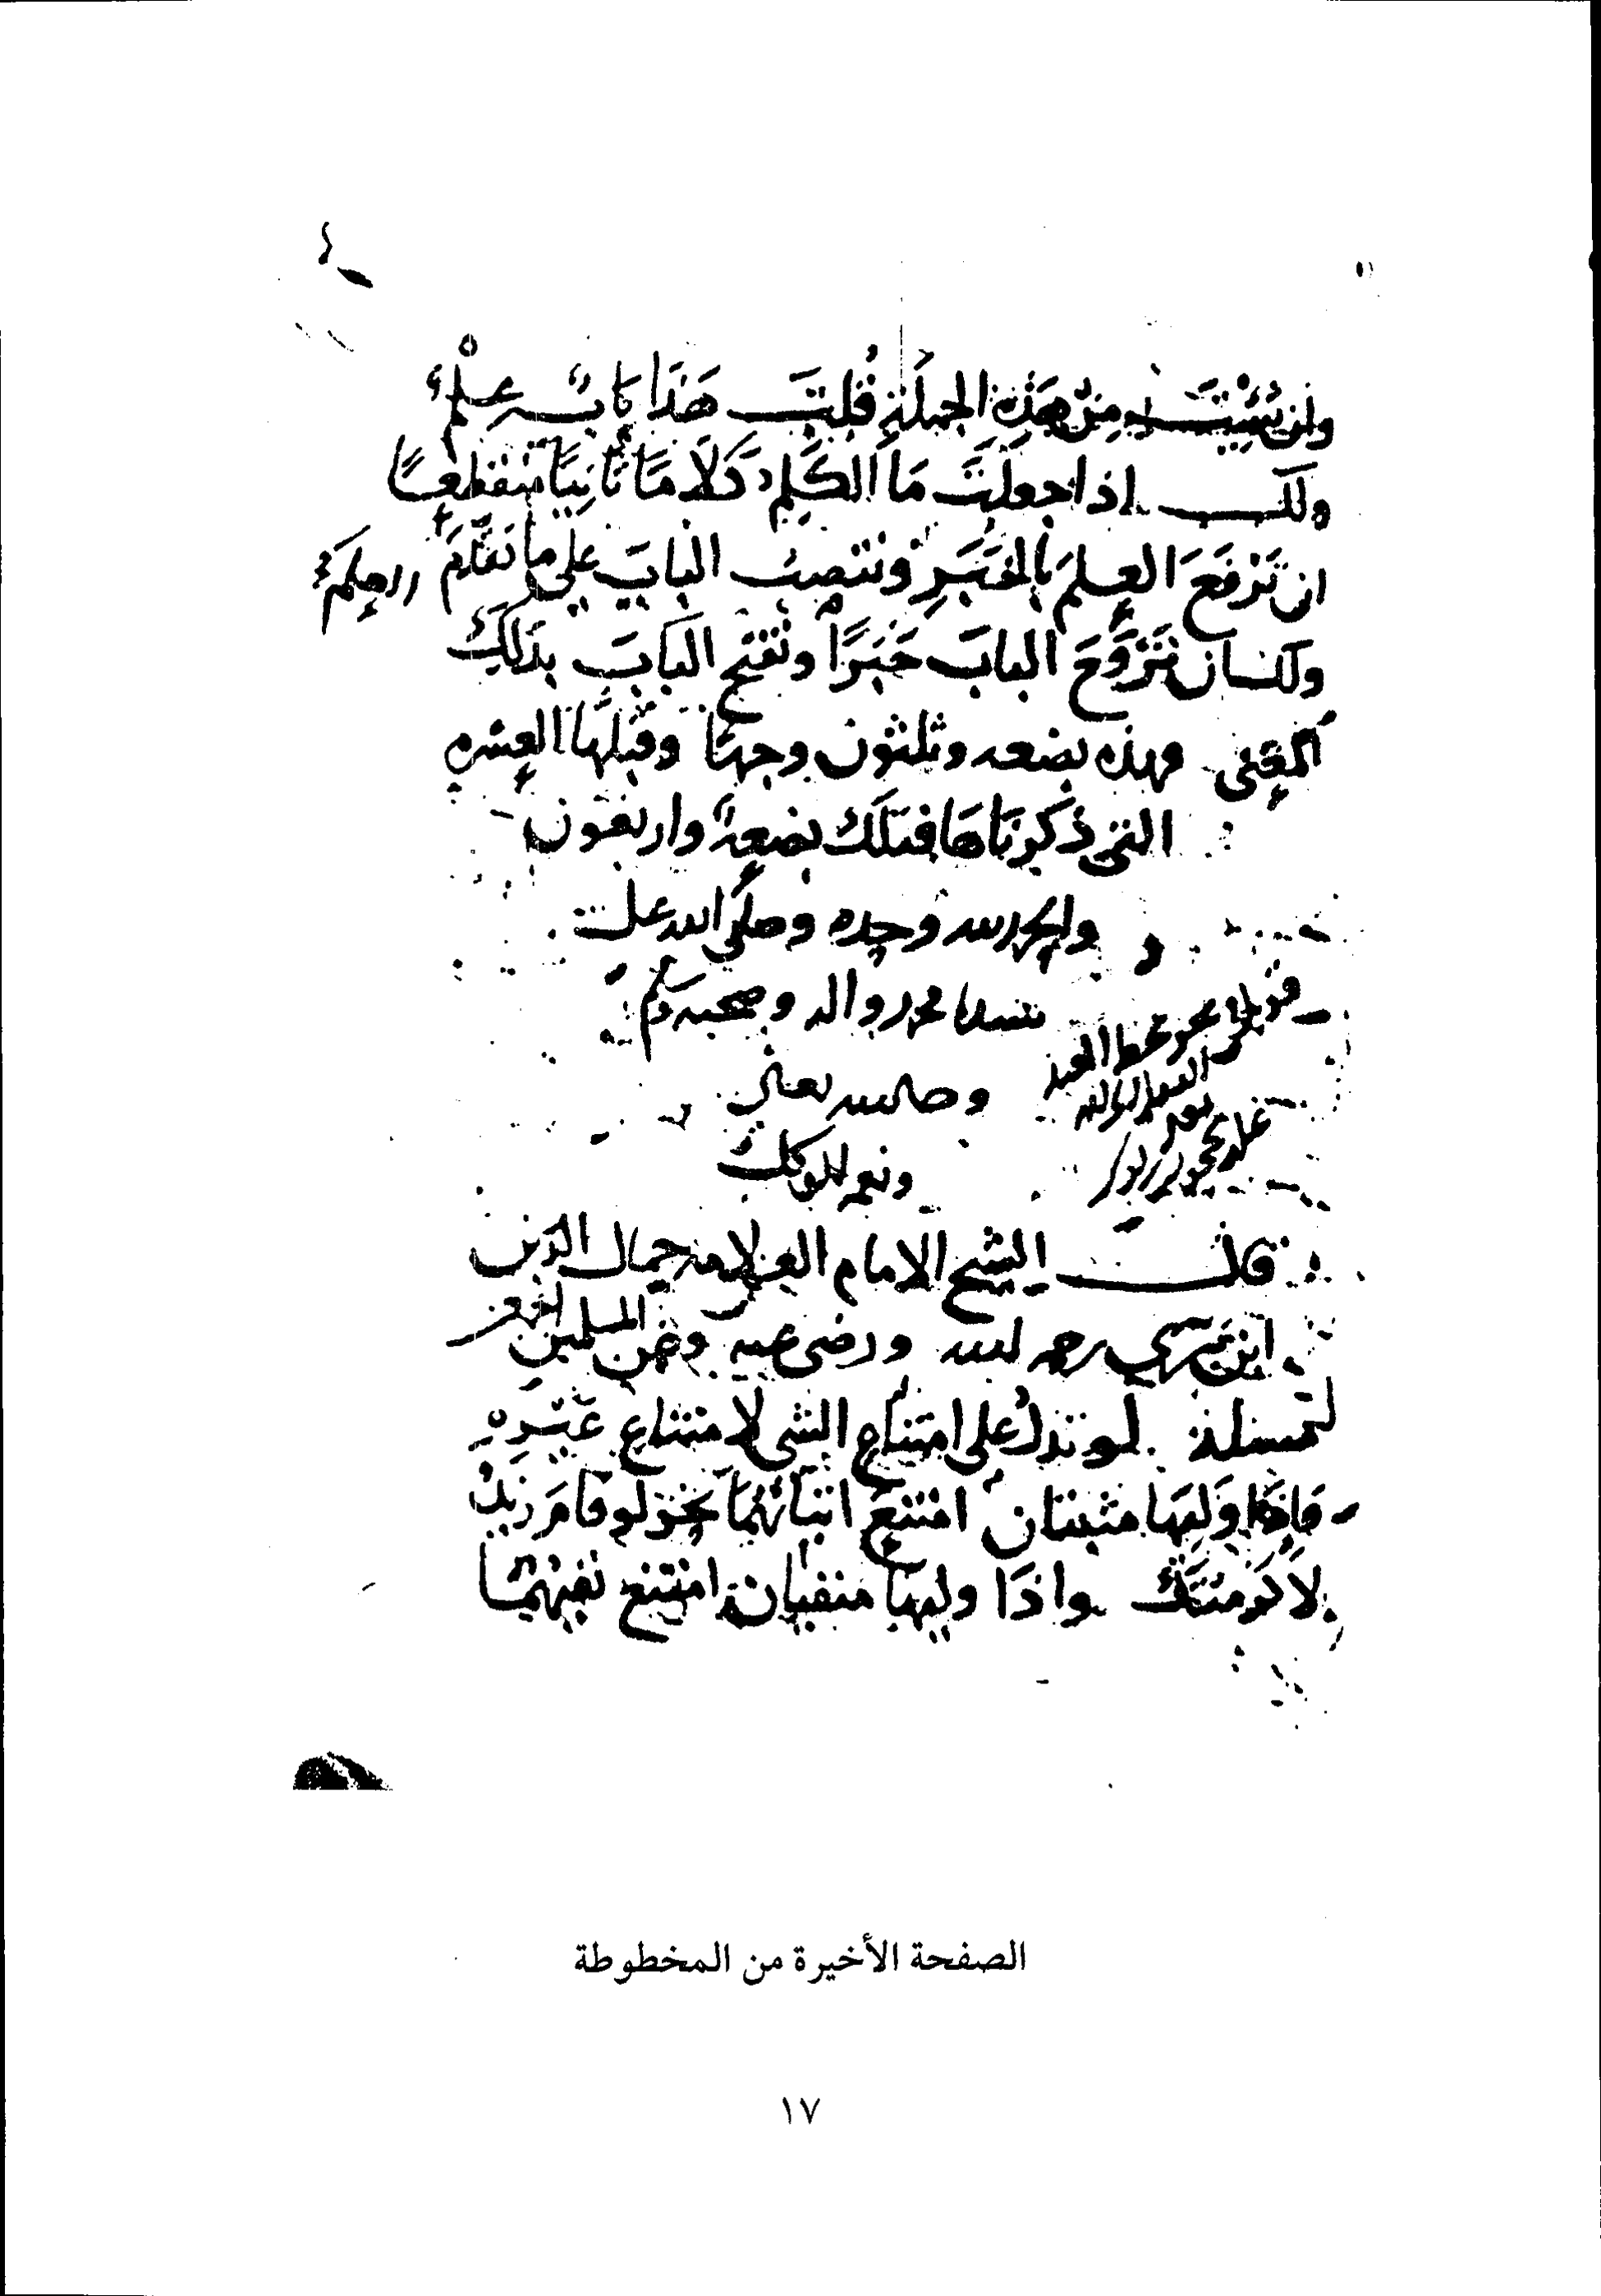 وان شئت من هذه الجملة قلت هَذَا بابٌ عِلْمُ
ولك اذا جعلت مَا الكَلِمُ كَلَامًا ثانِيًا منقطعًا
ان تَرْفَعَ العِلمَ بالخَبَرِ وتنصب البابَ على ما تقدّمَ
ولك ان البابَ خَبَرًا وتفتح البابَ بذلِكَ
المعنى وهذه بضعه وثلثون وجهًا وقبلها العشره
التى ذكرنَاهَا فتلك بضعةٌ واربعون
والحمد لله وحده وصلى الله على
سيدنا محمد واله وصحبه وسلم
قوبل
وحسبنا الله تعالى
ونعم الوكيل
قال الشيخ الامام العلامه جمال الدين
ابن بَرّي رحمه الله ورضى عنه وعن المسلمين اجمعين
مسئلة لو تدلُّ على امتناع الشى لامتناع غَيْرِهِ
فاِذَا وَليهَا مثبتان امتنع اثباتهُمَا نحو لو قامَ زيدٌ
لاكرمتك واذَا وليها منفيان امتنع نفيهُمَا
الصفحة الأخيرة من المخطوطة
١٧